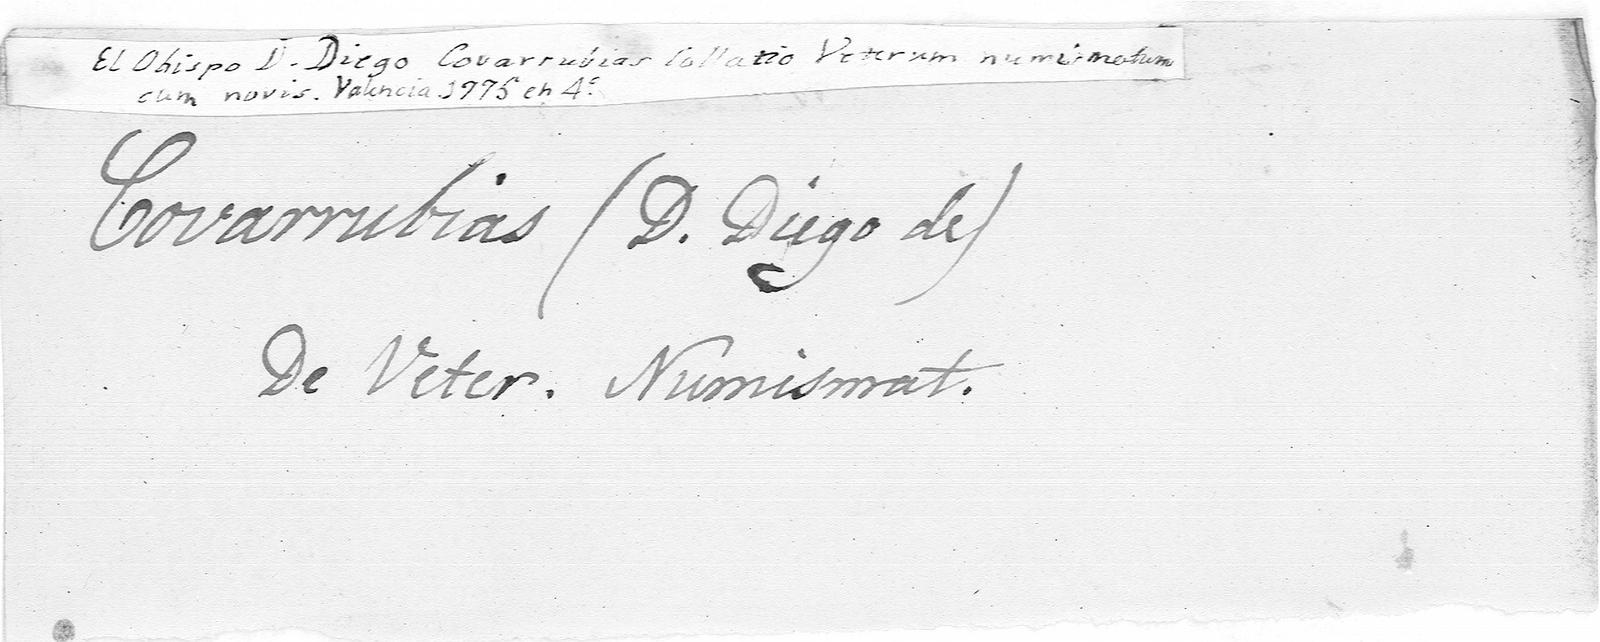 El Obispo D. Diego Covarrubias Collatio Veterum numismatum
cum novis. Valencia 1775 en 4º
Covarrubias (D. Diego de)
De Veter. Numismat.